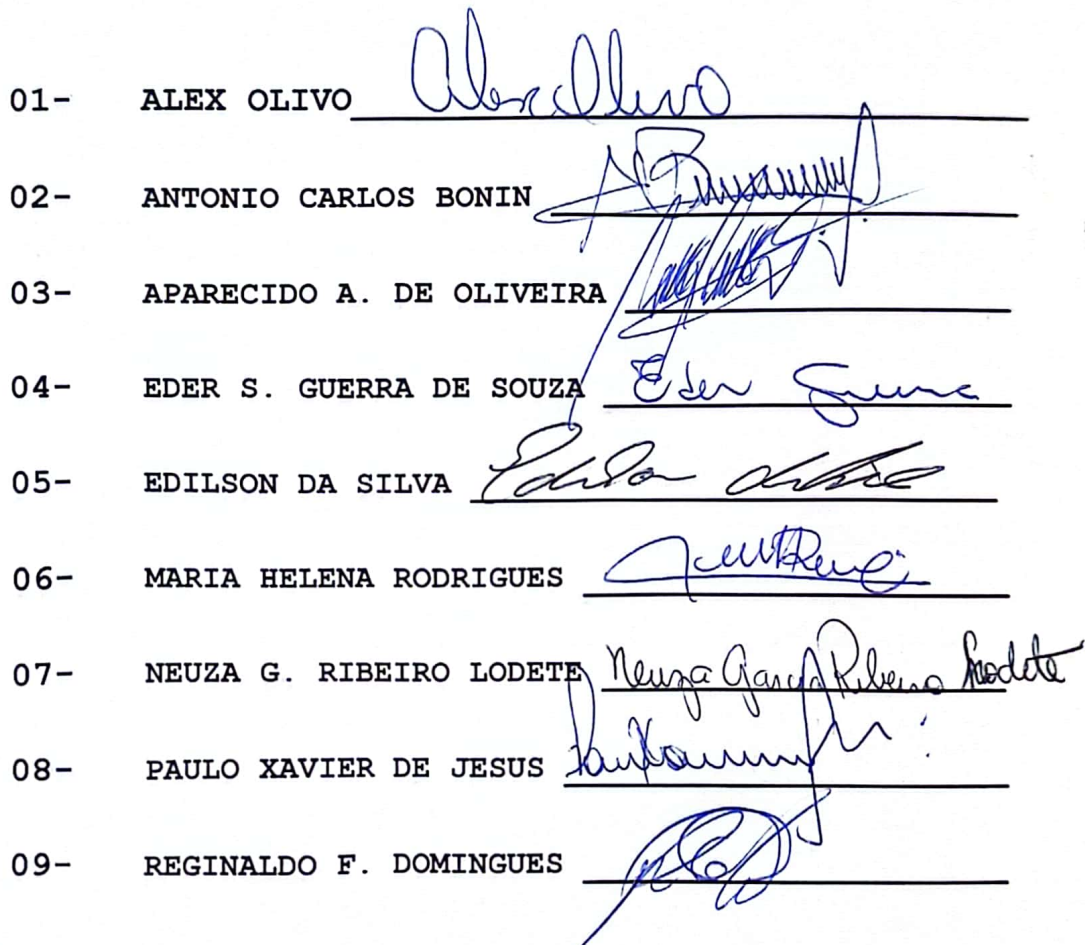 01- ALEX OLIVO Alex Olivo
02- ANTONIO CARLOS BONIN
03- APARECIDO A. DE OLIVEIRA
04- EDER S. GUERRA DE SOUZA Eder Guerra
05- EDILSON DA SILVA Edilson da Silva
06- MARIA HELENA RODRIGUES
07- NEUZA G. RIBEIRO LODETE Neuza Garcia Ribeiro Lodete
08- PAULO XAVIER DE JESUS
09- REGINALDO F. DOMINGUES